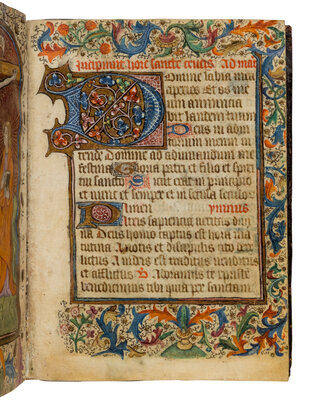 Incipiunt hore sancte crucis Ad mat
Domine labia mea
aperies Et os me
um annuncia
bit laudem tuam
Deus in adiu
torium meum inten
tende Domine ad adiuuandum me
festina Gloria patri et filio et spiri
tui sancto Sicut erat in principio
et nunc et semper et in secula seculorum
Amen ympnus
Patris sapiencia veritas diui
na Deus homo captus est hora ma
tutina A notis et discipulis cito relic
tus A iudeis est traditus venditus
et afflictus Adoramus te christe
benedicimus tibi quia per sanctam